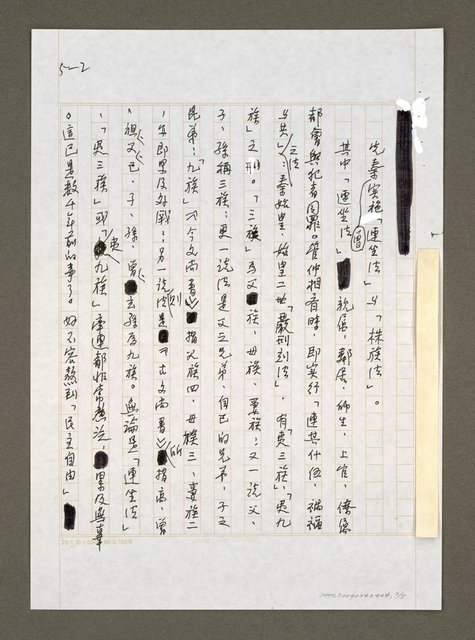 5-2
先秦實施「連坐法」與「株族法」。
其中「連坐法」曾 親屬、鄰居、師生、上官、僚屬
都會與犯者同罪。管仲相齊時,即實行「連其什伍,禍福
與共」之法;秦始皇、始皇二世「嚴刑到法」,有「夷三族」、「夷九
族」之刑。「三族」為父族、母族、妻族;又一說父、
子、孫稱三族;更一說法是父之兄弟、自己的兄弟、子之
兄弟;「九族」《今文尚書》指父族四、母族三、妻族二
,牽累及好戰;另一說法則是《古文尚書》所指高、曾
、祖、父、己、子、孫、曾、玄孫為九族。無論是「連坐法」
、「夷三族」或「夷九族」,牽連都非常慘法,累及無辜
。這已是數千年前的事了。好不容熬到「民主自由」
25×10=
NMTL20090240404 2/5